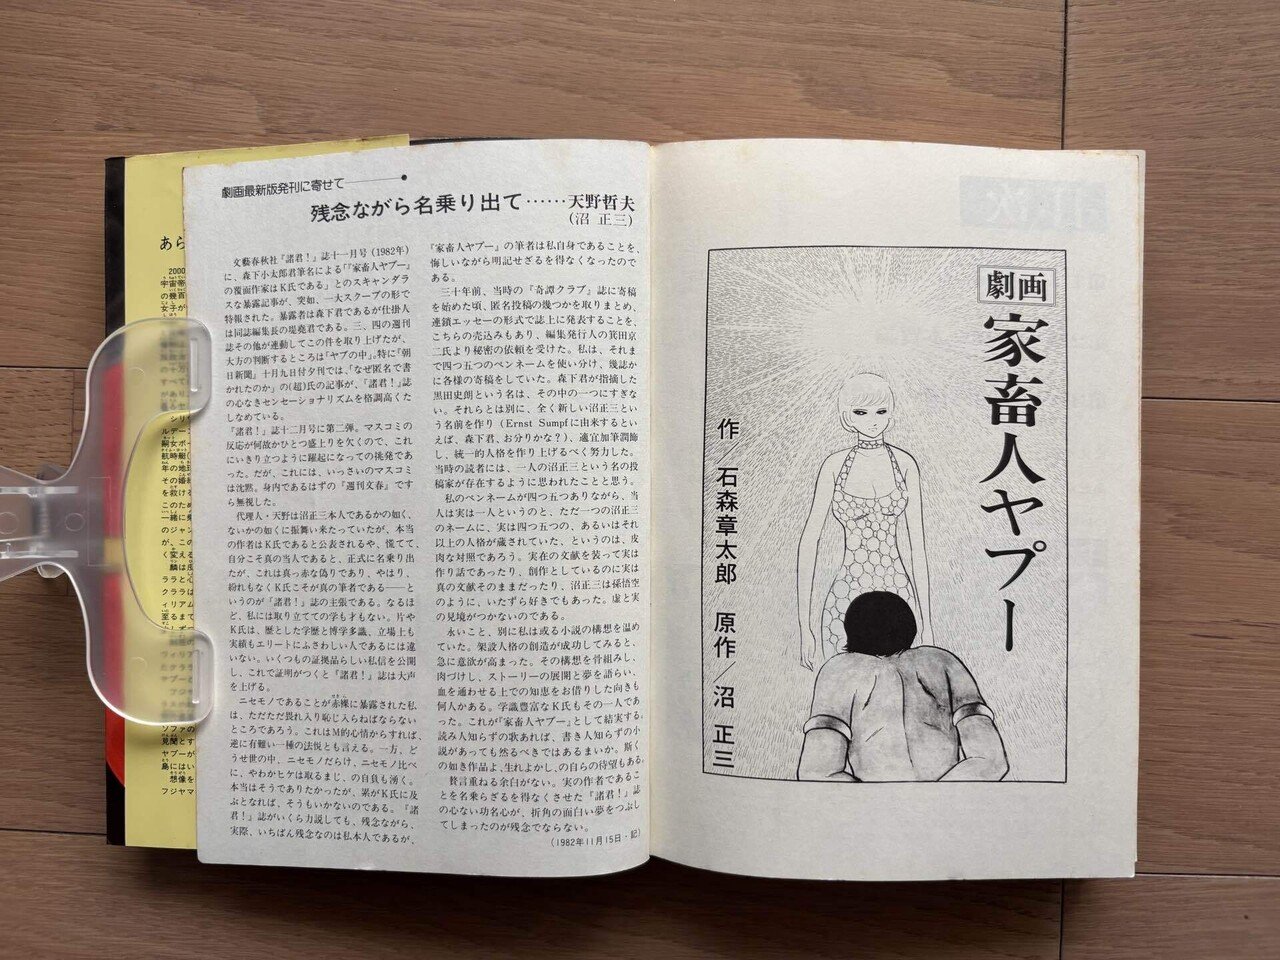 劇画最新版発刊に寄せて
残念ながら名乗り出て……天野哲夫
(沼 正三)
文藝春秋社『諸君!』誌十一月号(1982年)
に、森下小太郎君筆名による「『家畜人ヤプー』
の覆面作家はK氏である」とのスキャンダラ
スな暴露記事が、突如、一大スクープの形で
特報された。暴露者は森下君であるが仕掛人
は同誌編集長の堤堯君である。三、四の週刊
誌その他が連動してこの件を取り上げたが、
大方の判断するところは「ヤブの中」。特に『朝
日新聞』十月九日付夕刊では、「なぜ匿名で書
かれたのか」の(超)氏の記事が、『諸君!』誌
の心なきセンセーショナリズムを格調高くた
しなめている。
『諸君!』誌十二月号に第二弾。マスコミの
反応が何故かひとつ盛上りを欠くので、これ
にいきり立つように躍起になっての挑発であ
った。だが、これには、いっさいのマスコミ
は沈黙。身内であるはずの『週刊文春』です
ら無視した。
代理人・天野は沼正三本人であるかの如く、
ないかの如くに振舞い来たっていたが、本当
の作者はK氏であると公表されるや、慌てて、
自分こそ真の当人であると、正式に名乗り出
たが、これは真っ赤な偽りであり、やはり、
紛れもなくK氏こそが真の筆者である――と
いうのが『諸君!』誌の主張である。なるほ
ど、私には取り立ての学も才もない。片や
K氏は、歴とした学歴と博学多識、立場上も
実績もエリートにふさわしい人であるには違
いない。いくつもの証拠品らしい私信を公開
し、これで証明がつくと『諸君!』誌は大声
を上げる。
ニセモノであることが赤裸に暴露された私
は、ただただ畏れ入り恥じ入らねばならない
ところであろう。これはM的心情からすれば、
逆に有難い一種の法悦とも言える。一方、ど
うせ世の中、ニセモノだらけ、ニセモノ比べ
に、やわかヒケは取るまじ、の自負も湧く。
本当はそうでありたかったが、累がK氏に及
ぶとなれば、そうもいかないのである。『諸
君!』誌がいくら力説しても、残念ながら、
実際、いちばん残念なのは私本人であるが、
『家畜人ヤプー』の筆者は私自身であることを、
悔しいながら明記せざるを得なくなったので
ある。
三十年前、当時の『奇譚クラブ』誌に寄稿
を始めた頃、匿名投稿の幾つかを取りまとめ、
連鎖エッセーの形式で誌上に発表することを、
こちらの売込みもあり、編集発行人の箕田京
二氏より秘密の依頼を受けた。私は、それま
で四つ五つのペンネームを使い分け、幾誌か
に各様の寄稿をしていた。森下君が指摘した
黒田史朗という名は、その中の一つにすぎな
い。それらとは別に、全く新しい沼正三とい
う名前を作り(Ernst Sumpfに由来するとい
えば、森下君、お分りかな?)、適宜加筆潤飾
し、統一的人格を作り上げるべく努力した。
当時の読者には、一人の沼正三という名の投
稿家が存在するように思われたことと思う。
私のペンネームが四つ五つありながら、当
人は実は一人というのと、ただ一つの沼正三
のネームに、実は四つ五つの、あるいはそれ
以上の人格が蔵されていた、というのは、皮
肉な対照であろう。実在の文献を装って実は
作り話であったり、創作としているのに実は
真の文献そのままだったり、沼正三は孫悟空
のように、いたずら好きでもあった。虚と実
の見境がつかないのである。
永いこと、別に私は或る小説の構想を温め
ていた。架設人格の創造が成功してみると、
急に意欲が高まった。その構想を骨組みし、
肉づけし、ストーリーの展開と夢を語らい、
血を通わせる上での知恵をお借りした向きも
何人かある。学識豊富なK氏もその一人であ
った。これが『家畜人ヤプー』として結実する。
読み人知らずの歌あれば、書き人知らずの小
説があっても然るべきではあるまいか。斯く
の如き作品よ、生れよかし、の自らの待望もある。
贅言重ねる余白がない。実の作者であるこ
とを名乗らざるを得なくさせた『諸君!』誌
の心ない功名心が、折角の面白い夢をつぶし
てしまったのが残念でならない。
(1982年11月15日・記)
劇画
家畜人ヤプー
作/石森章太郎 原作/沼 正三